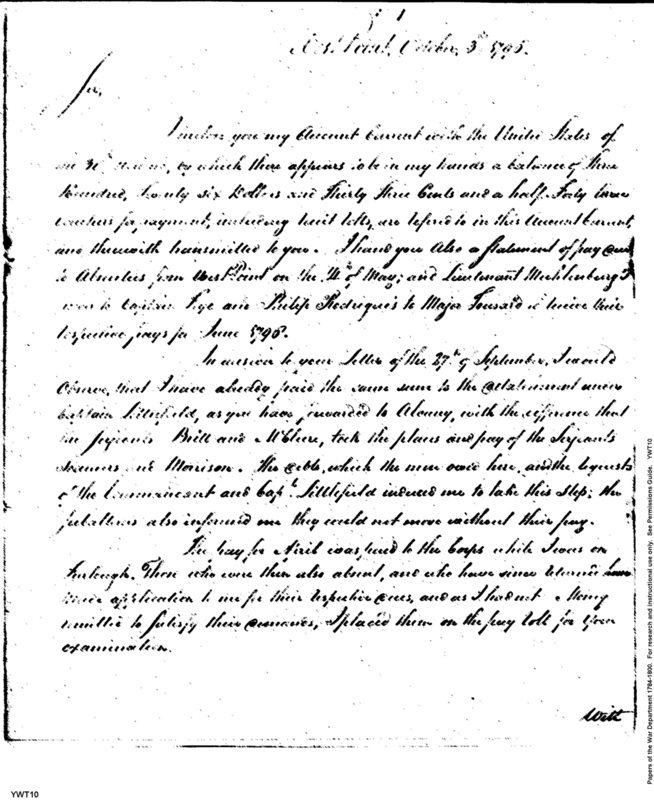 West Point, October 3d 1796.
Sir,
I inclose you my Account Current with the United States of
the 30th by which there appears to be in my hands a balance of Three
Hundred, Twenty six Dollars and Thirty Three Cents and a half. Forty three
vouchers for payment, including receipt rolls, are refered to in this Account Current,
and therewith transmitted to you. I hand you Also a Statement of pay due
to Absentees from West Point on the of May; and Lieutenant Muhlenberg's
to Captain Frye and Philip Rodrigues to Major Tousard to receive their
respective pays for June 1796.
In answer to your Letter of the 27th of September, I would
Observe, that I have already paid the same sum to the detatchment under
Captain Littlefield, as you have forwarded to Albany, with the difference that
the Serjeants Britt and McClure, took the places and pay of the Serjeants
and Morrison. The debts, which the men owed here, and the requests
of the Commandant and Capt. Littlefield induced me to take this Step; the
also informed me they could not move without their pay.
The pay for April was paid to the Corps while I was on
Furlough. Those who were then also absent, and who have since returned have
made application to me for their respective dues, and as I had not Money
remitted to Satisfy their demands, I placed them on the pay roll for Your
examination.
With
YWT10
Papers of the War Department 1784-1800. For research and instructional use only. See Permissions Guide. YWT10